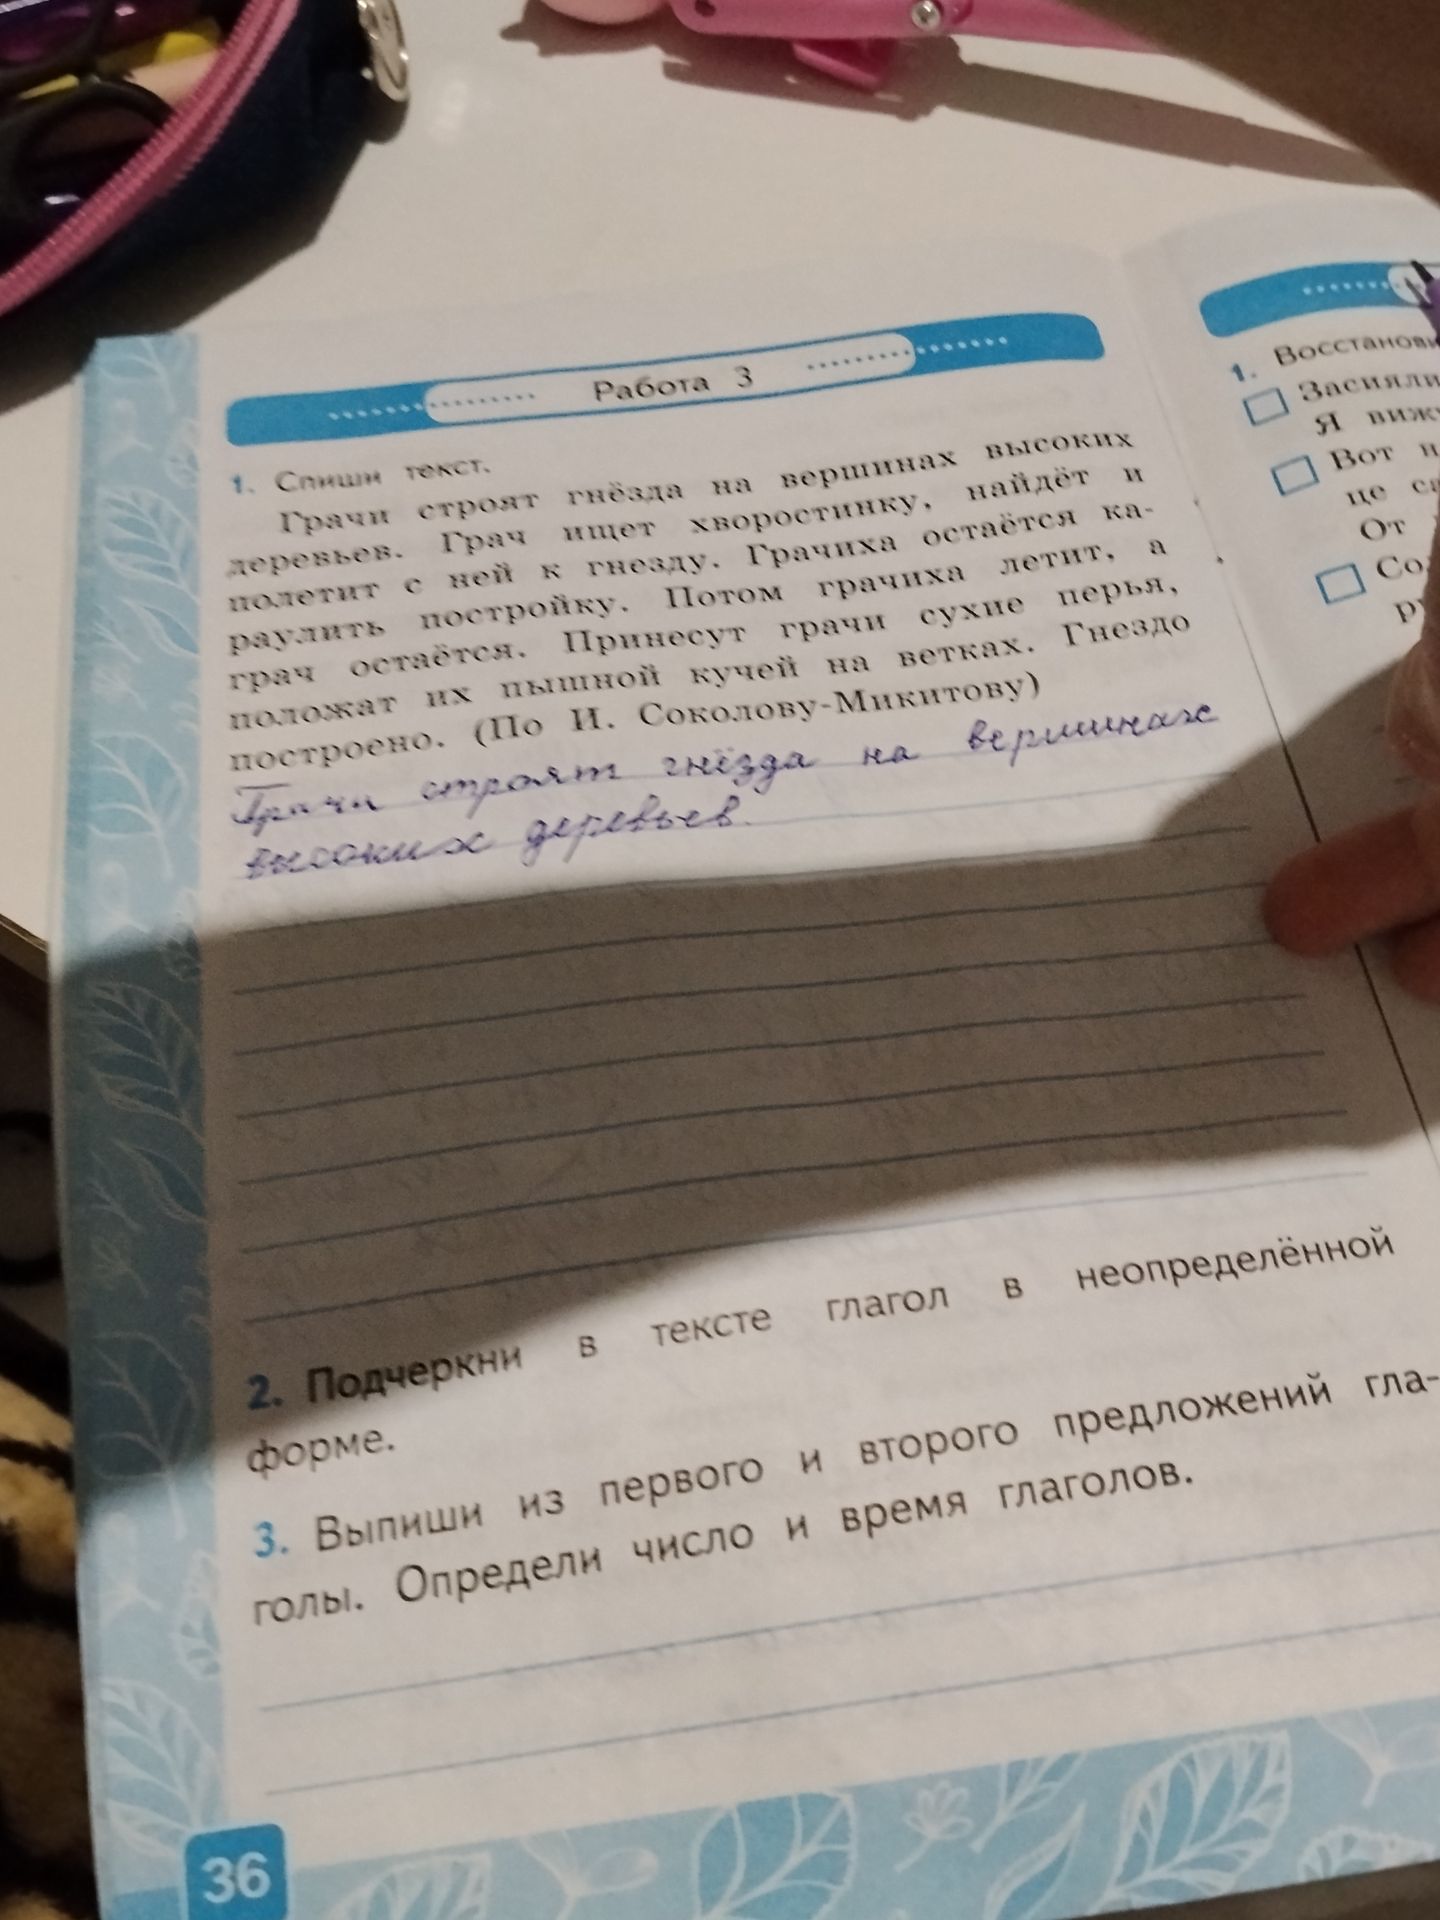 Работа 3
1. Спиши текст.
Грачи строят гнёзда на вершинах высоких
деревьев. Грач ищет хворостинку, найдёт и
полетит с ней к гнезду. Грачиха остаётся ка-
раулить постройку. Потом грачиха летит, а
грач остаётся. Принесут грачи сухие перья,
положат их пышной кучей на ветках. Гнездо
построено. (По И. Соколову-Микитову)
Грачи строят гнёзда на вершинах
высоких деревьев.
2. Подчеркни в тексте глагол в неопределённой
форме.
3. Выпиши из первого и второго предложений гла-
голы. Определи число и время глаголов.
36
1.
Засияли
Я
Вот
це
От